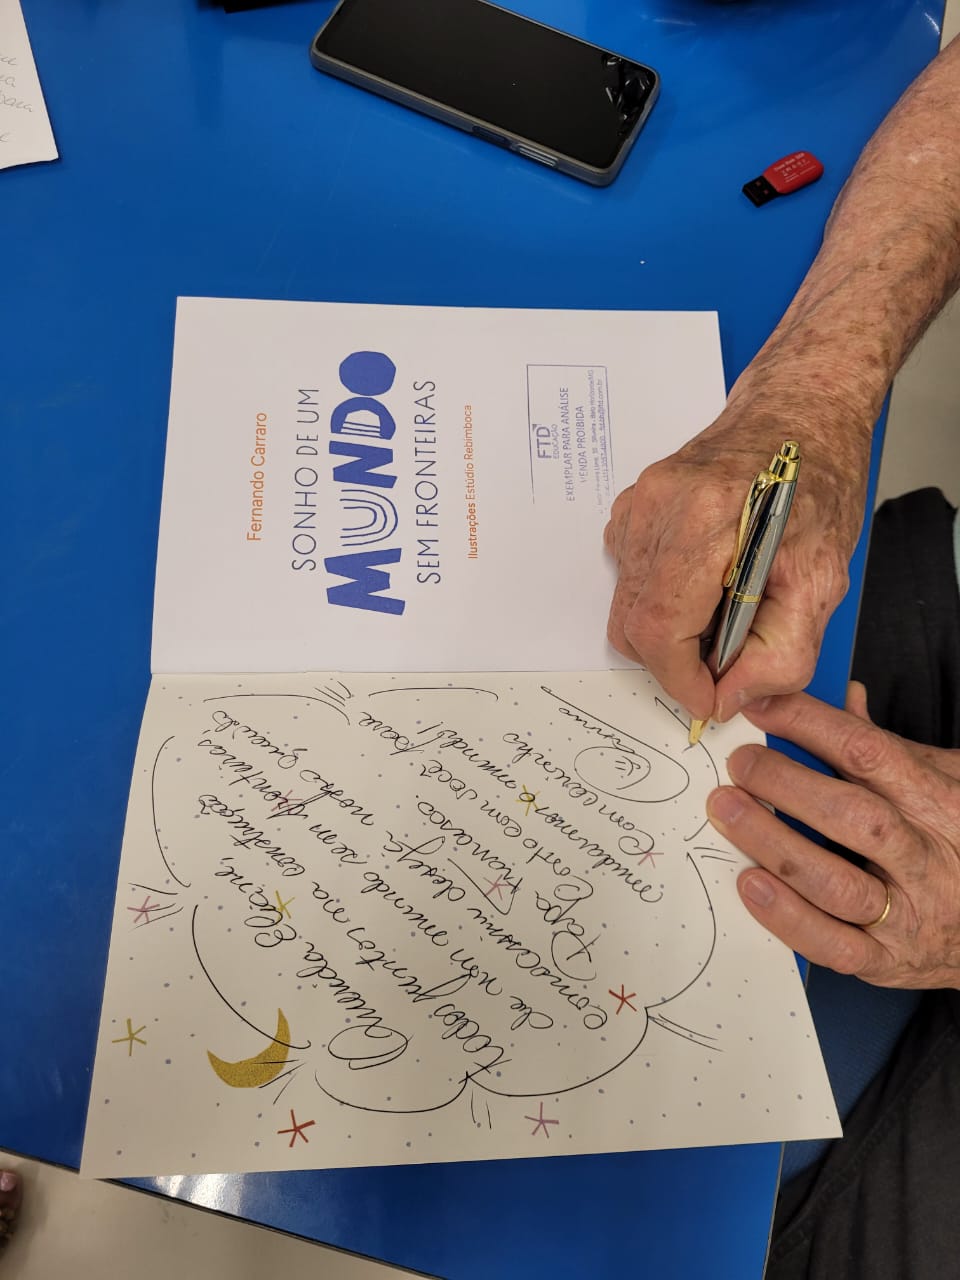 Fernando Carraro
SONHO DE UM
MUNDO
SEM FRONTEIRAS
Ilustrações Estúdio Rebimboca
FTD
EDUCAÇÃO
EXEMPLAR PARA ANÁLISE
VENDA PROIBIDA
Querida Eliane,
todos juntos na construção
de um mundo sem fronteiras,
como assim deseja nosso querido
Papa Francisco.
Conto com você para
mudarmos o mundo!!
Com carinho